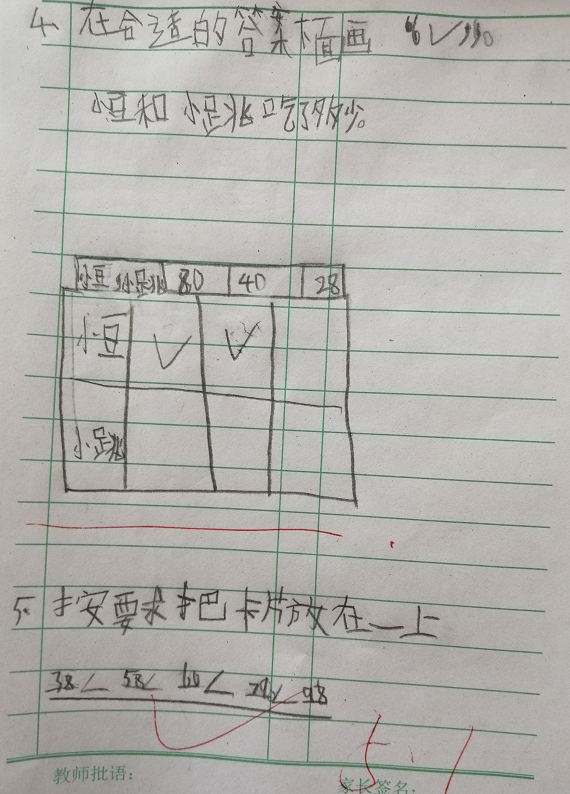 4. 在合适的答案下面画“✓”。
小豆和小跳吃了多少。
小豆 小跳 80 40 28
小豆 ✓ ✓
小跳
5. 按要求把卡片放在—上
38< 58< 60< 79< 98
教师批语:
家长签名: